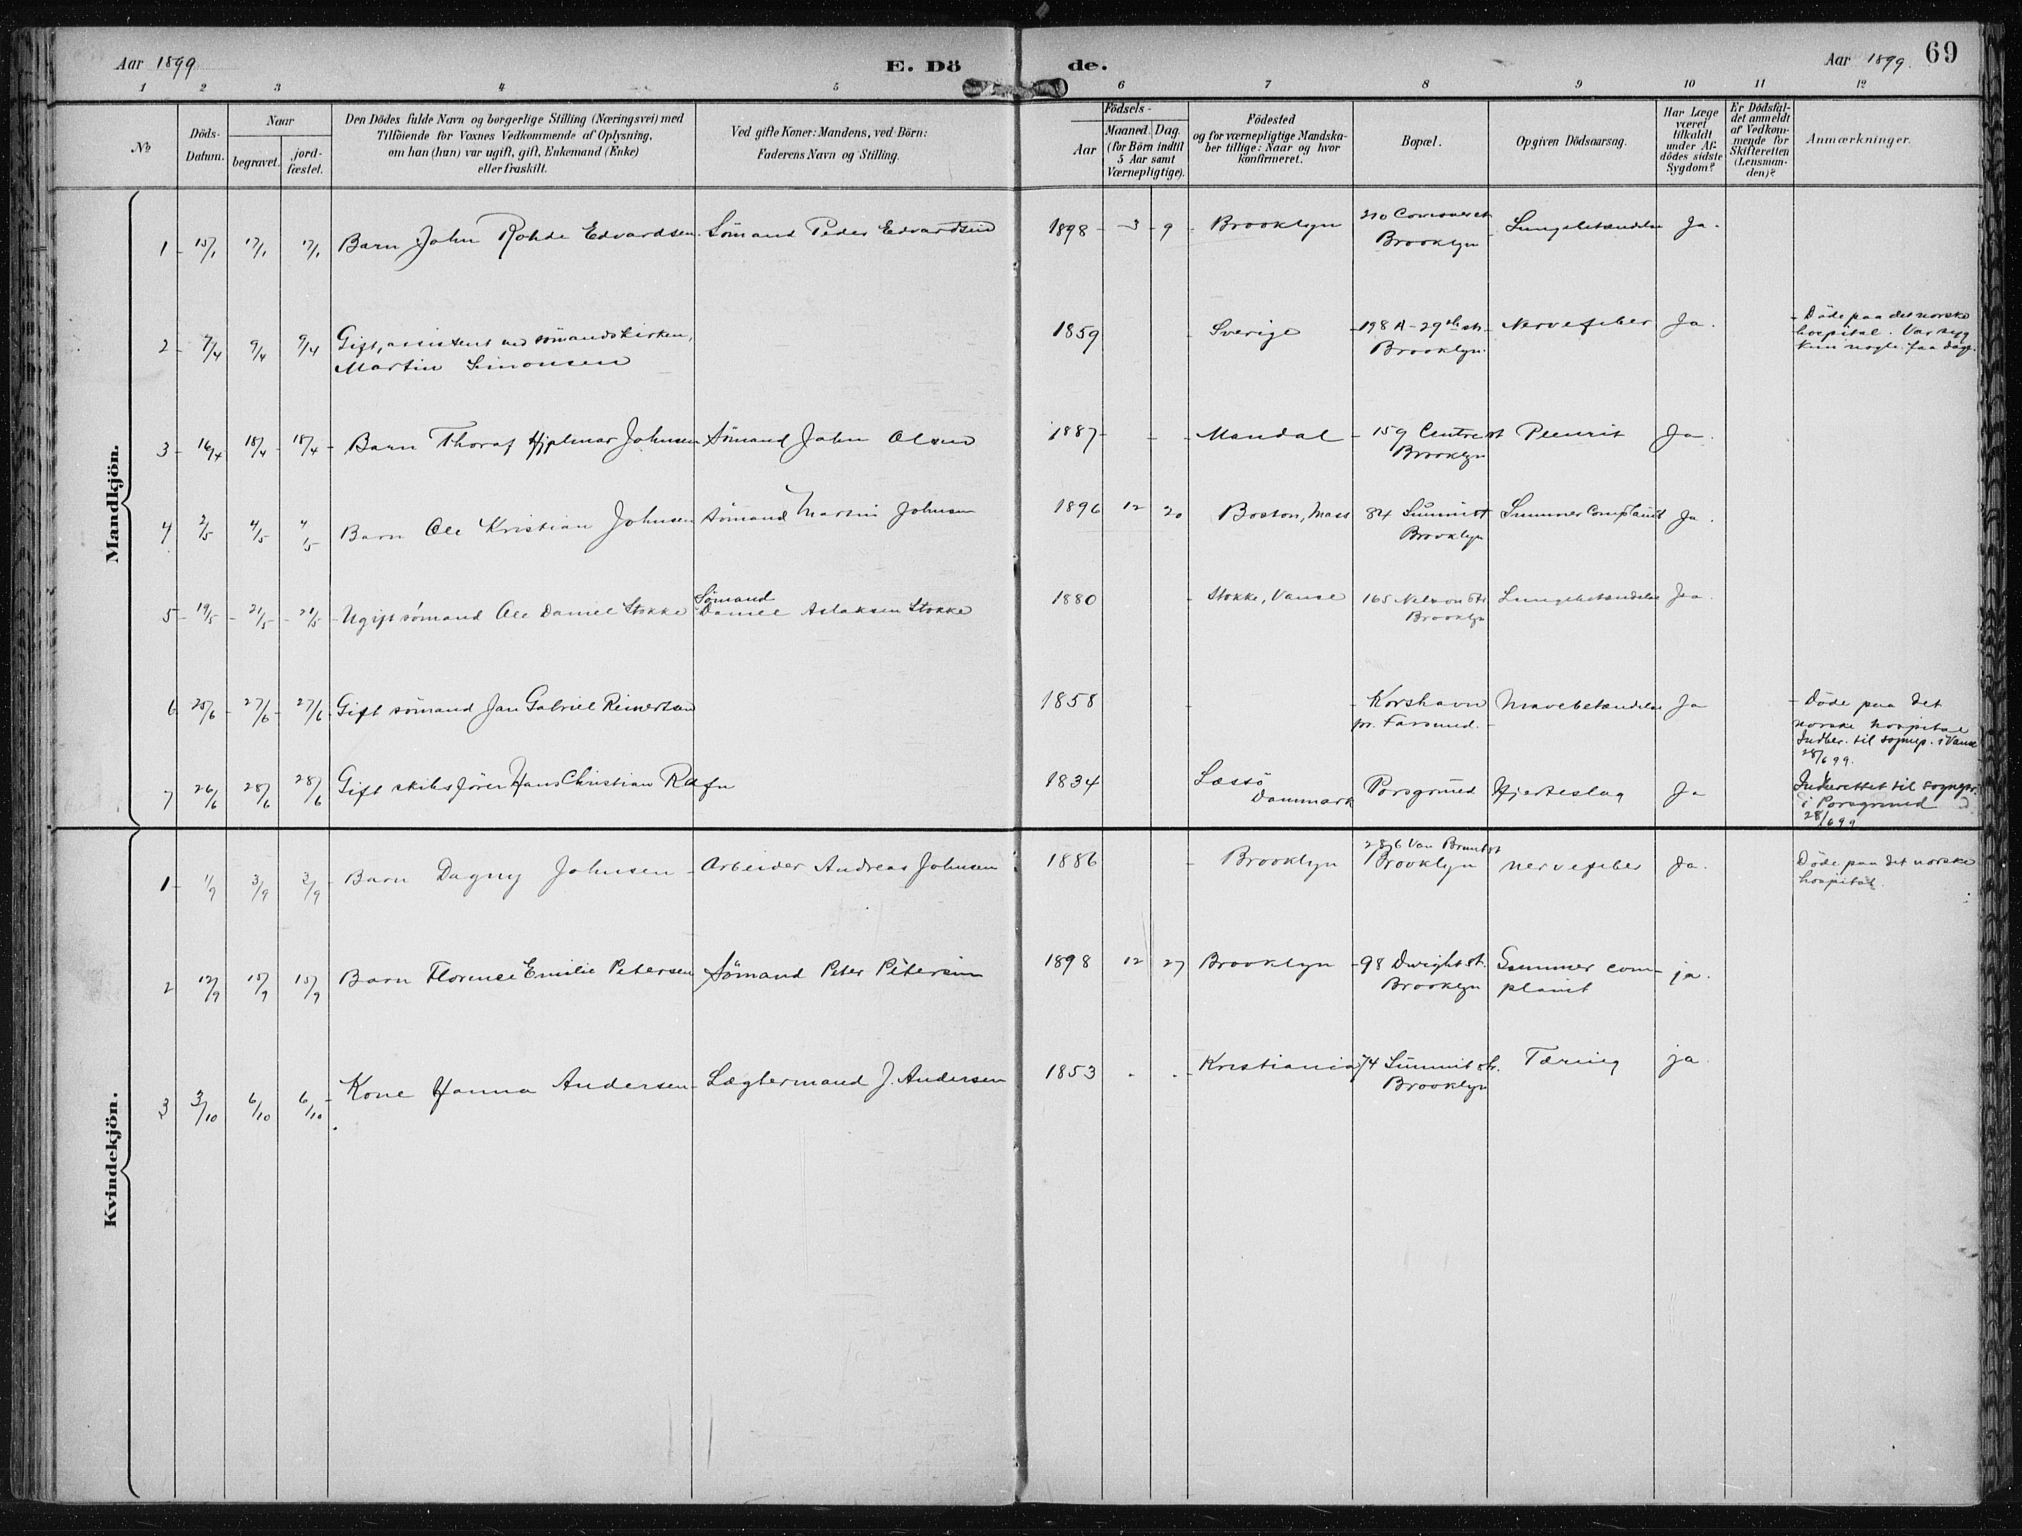 Aar 1899
E. Dö
de.
Aar 1899.
69
1 2 3 4 5 6 7 8 9 10 11 12
No
Döds-
Datum.
Naar
begravet.
jord-
fæstet.
Den Dödes fulde Navn og borgerlige Stilling (Næringsvei) med
Tilföiende for Voxnes Vedkommende af Oplysning,
om han (hun) var ugift, gift, Enkemand (Enke)
eller fraskilt.
Ved gifte Koner: Mandens, ved Börn:
Faderens Navn og Stilling.
Födsels-
Aar
Maaned. Dag.
(for Börn indtil
5 Aar samt
Værnepligtige).
Födested
og for værnepligtige Mandska-
ber tillige: Naar og hvor
konfirmeret.
Bopæl.
Opgiven Dödsaarsag.
Har Læge
været
tilkaldt
under Af-
dödes sidste
Sygdom?
Er Dödsfal-
det anmeldt
af Vedkom-
mende for
Skifteretten
(Lensman-
den)?
Anmærkninger.
Mandkjön.
1 - 15/1 17/1 17/1 Barn John Rohde Edvardsen. Sömand Peder Edvardsen 1898 - 3 - 9 - Brooklyn 210 Conover st Brooklyn - Lungebetændelse Ja.
2 - 7/4 9/4 9/4 Gift, assistent ved sömandskirken, 1859 - Sverige - 198 A - 29th str - Nervefeber Ja. - Döde paa det norske
Martin Simonsen Brooklyn. hospital. Var syg
kun nogle faa dage.
3 - 16/4 - 18/4 - 18/4 - Barn Thoraf Hjelmar Johnsen Sömand John Olsen 1887 - - - Mandal - 159 Centre st Pleurit Ja.
Brooklyn
4 2/5 4/5 4/5 Barn Ole Kristian Johnsen Sömand Martin Johnsen 1896 12 20 Boston, Mass 84 Summit Summer complaint Ja.
Brooklyn
5 - 19/5 - 21/5 - 21/5 - Ugift sömand Ole Daniel Stokke Sömand Daniel Aslaksen Stokke 1880 - Stokke, Vanse 165 Nelson str. Lungebetændelse Ja.
Brooklyn
6 25/6 - 27/6 - 27/6 - Gift sömand Jan Gabriel Reinertsen 1858 - - Korshavn Mavebetændelse Ja - Döde paa det
pr. Farsund. - norske hospital
Indber. til sognep. i Vanse
28/6 99.
7 26/6 28/6 28/6 Gift skibsförer Hans Christian Rafn 1834 Læssö Danmark Porsgrund Hjerteslag Ja Inberettet til sognepr.
i Porsgrund
28/6 99
Kvindekjön.
1 - 1/9 3/9 3/9 Barn Dagny Johnsen - Arbeider Andreas Johnsen 1886 - Brooklyn 286 Van Brunt st Brooklyn nervefeber Ja. Döde paa det norske
hospital.
2 12/9 15/9 15/9 Barn Florence Emilie Petersen Sömand Peter Petersen 1898 12 27 Brooklyn - 98 Dwight st. Summer com- ja.
Brooklyn plaint
3 3/10 6/10 6/10 - Kone Hanna Andersen - Lægtermand J. Andersen 1853 - - Kristiania 74 Summit str. Tæring ja.
Brooklyn